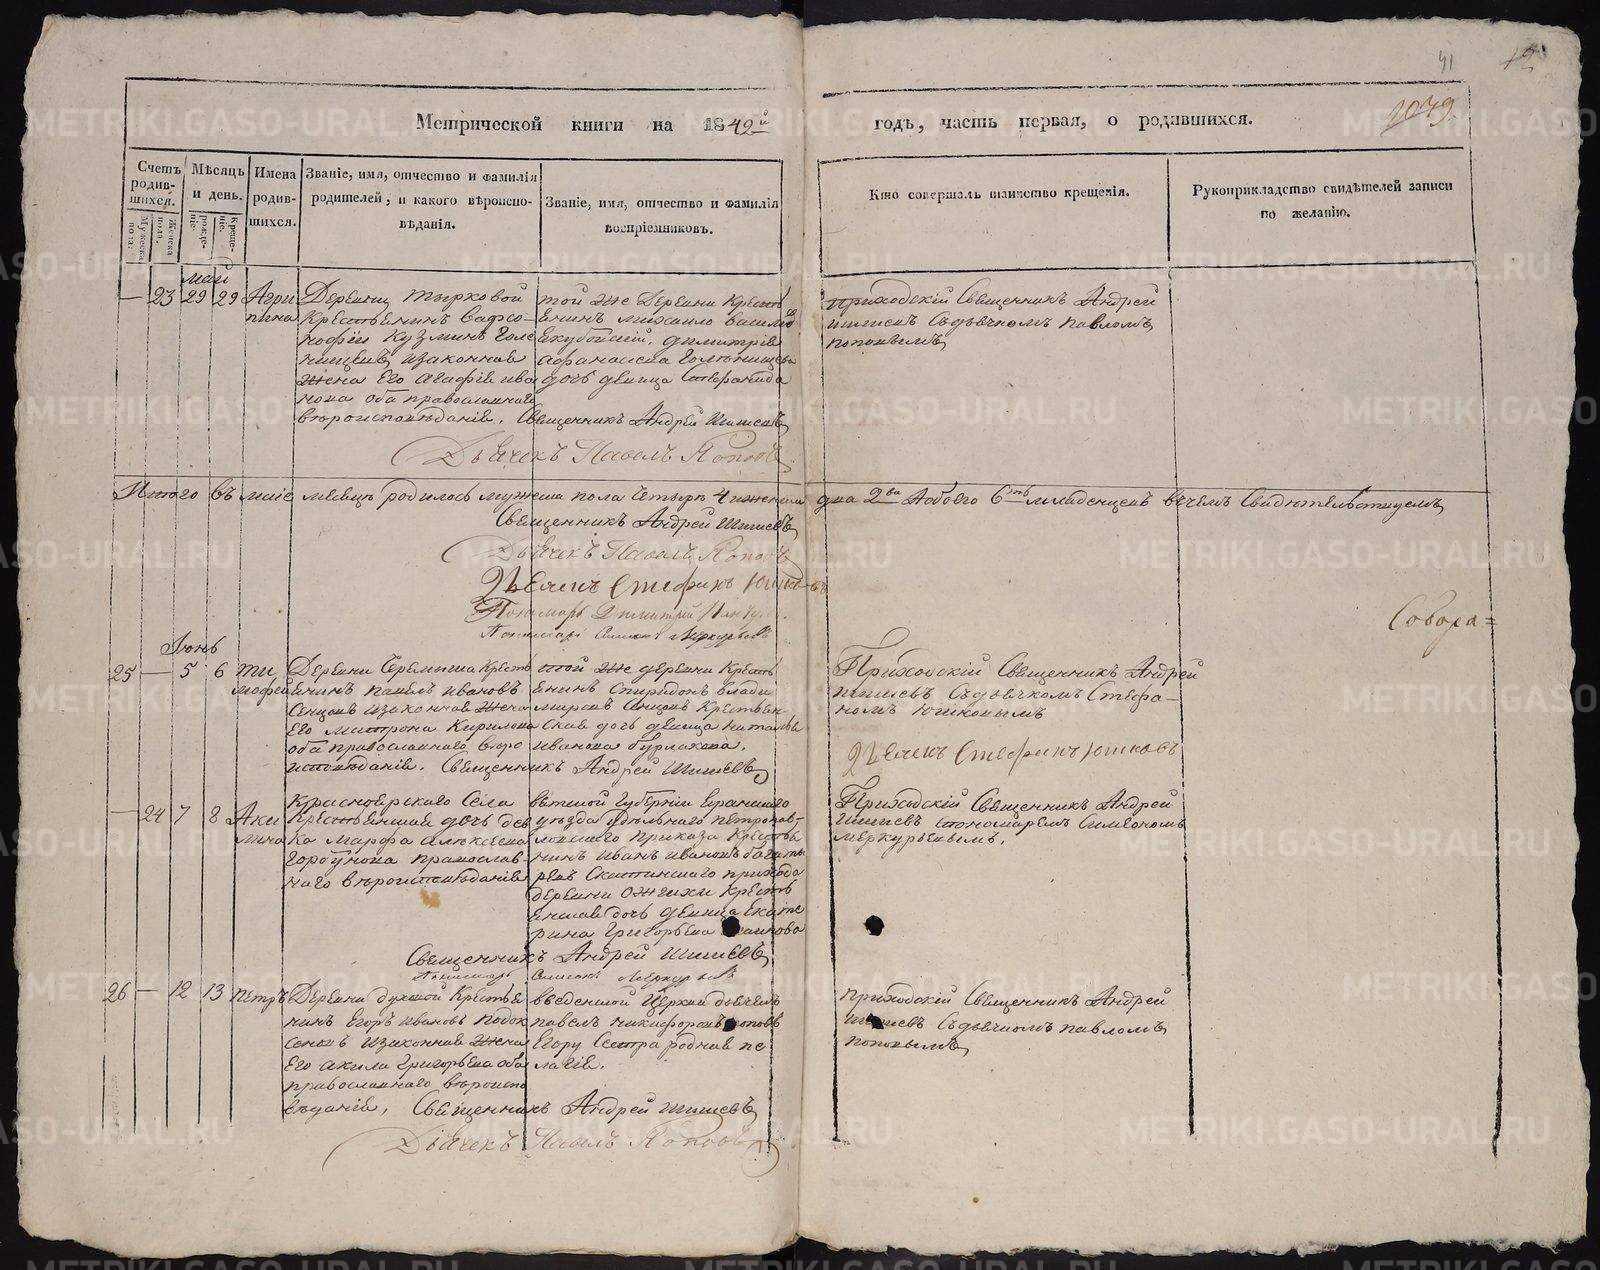 41
1079.
Метрической книги на 1842й
годъ, часть первая, о родившихся.
Счетъ родив-шихся.
Мужеска пола.
Женска пола.
Мѣсяцъ и день.
рожде-нія.
креще-нія.
Имена родив-шихся.
Званіе, имя, отчество и фамилія родителей, и какого вѣроиспо-вѣданія.
Званіе, имя, отчество и фамилія воспріемниковъ.
Кто совершалъ таинство крещенія.
Рукоприкладство свидѣтелей записи по желанію.
Май
— 23 29 29 Агри
пина
Деревни Тырковой
Крестьенинъ
Кузминъ Голе
нищевъ изаконная
жена его Агафіе Ива
нова оба православнаго
вѣроисповѣданіе.
той же Деревни Кресть
енинъ Михаило
Димитріе
Афанасиева Голенищева
дочь девица Стефанида
Священникъ Андрей Шишевъ
Дьячекъ Павелъ Поповъ
приходскій Священникъ Андрей
Шишевъ Съдьячкомъ Павломъ
Поповымъ
Итого въ маіе месяце родилось мужеска пола четыре 4 женска два 2ва Аобоего 6ть младенцевъ вчемъ Свидетельствуемъ
Священникъ Андрей Шишевъ
Дьячекъ Павелъ Поповъ
Дьячекъ Стефанъ Юшковъ
Пономарь Димитрій
Пономарь Симеонъ Меркурьевъ
Собора=
Іюнь
25 — 5 6 Ти
мофей
Деревни Черемыша Кресть
енинъ Павелъ Ивановъ
Сенцовъ изаконная жена
Его Матрона Кирилова
оба православнаго веро
исповѣданіе.
той же деревни Кресть
енинъ Спиридонъ Влади
мировъ Сенцовъ Крестьен-
ская дочь девица Наталья
Иванова Бурлакова.
Священникъ Андрей Шишевъ
Приходскій Священникъ Андрей
Шишевъ Съдьячкомъ Стефа-
номъ Юшковымъ
Дьячекъ Стефанъ Юшковъ
— 24 7 8 Аки
лина
Красноярскаго Села
Крестьянская дочь дев
ка Марфа Алексеева
Горбунова православ-
наго вѣроисповѣданіе
вятской Губерніи Еранскаго
уезда удельнаго Петропав-
ловскаго приказа Крестья
нинъ Иванъ Ивановъ Богаты
ревъ Скатинскаго прихода
деревни Ожгихи Кресть
енская дочь девица Екате
рина Григорьева
Священникъ Андрей Шишевъ
Пономарь Симеонъ Меркурьевъ
Приходскій Священникъ Андрей
Шишевъ спономаремъ Симеономъ
Меркурьевымъ.
26 — 12 13 Петръ
Деревни Духовой Крестья
нинъ Егоръ Ивановъ Подок
сеновъ изаконная жена
Его Акила Григорьева оба
православнаго вѣроиспо
вѣданіе,
введенской Церкви дьячекъ
Павелъ Никифоровъ Поповъ
Егору Сестра родная Пе
лагіе.
Священникъ Андрей Шишевъ
Дьячекъ Павелъ Поповъ
приходскій Священникъ Андрей
Шишевъ Съдьячкомъ Павломъ
Поповымъ